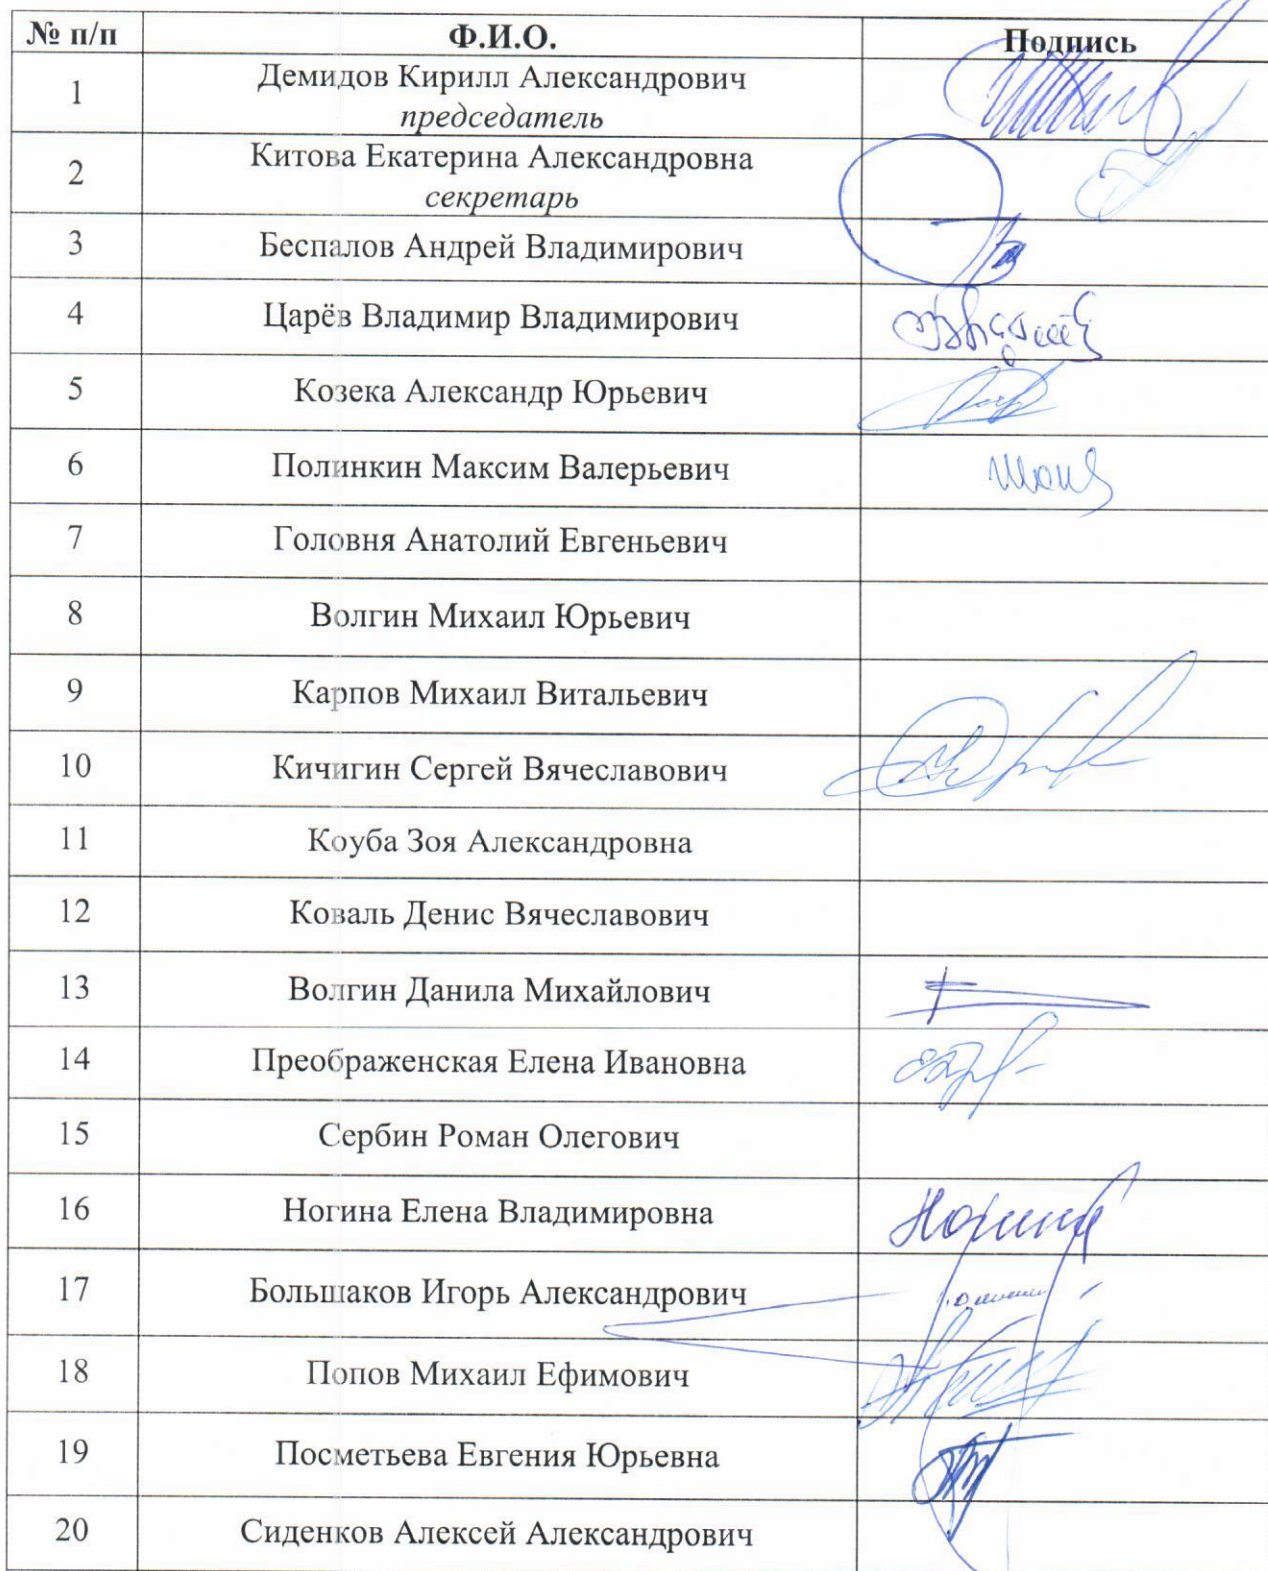 № п/п Ф.И.О. Подпись
1 Демидов Кирилл Александрович
председатель
2 Китова Екатерина Александровна
секретарь
3 Беспалов Андрей Владимирович
4 Царёв Владимир Владимирович
5 Козека Александр Юрьевич
6 Полинкин Максим Валерьевич
7 Головня Анатолий Евгеньевич
8 Волгин Михаил Юрьевич
9 Карпов Михаил Витальевич
10 Кичигин Сергей Вячеславович
11 Коуба Зоя Александровна
12 Коваль Денис Вячеславович
13 Волгин Данила Михайлович
14 Преображенская Елена Ивановна
15 Сербин Роман Олегович
16 Ногина Елена Владимировна
17 Большаков Игорь Александрович
18 Попов Михаил Ефимович
19 Посметьева Евгения Юрьевна
20 Сиденков Алексей Александрович